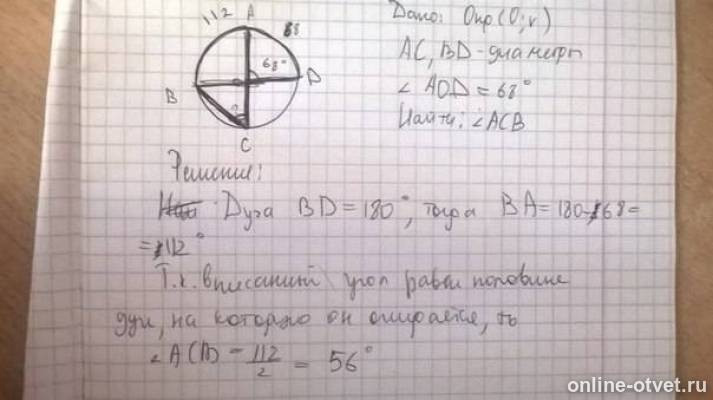 112 A 68
68°
B D
?
C
Дано: Окр(О; r)
AC, BD - диаметры
∠ AOD = 68°
Найти: ∠ACB
Решение:
Дуга BD = 180°, тогда BA = 180-68=
= 112°
Т.к. вписанный угол равен половине
дуги, на которую он опирается, то
∠ ACB = 112/2 = 56°
online-otvet.ru